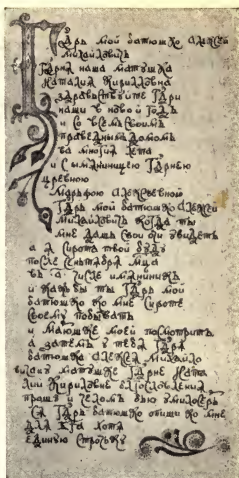 Гдрь мой батюшко Алексей
Михайловичъ
Гдрня наша матушка
Наталия Кирилловна
здравствуйте Гдри
наши в новой годъ
и со всемъ своимъ
праведнымъ домомъ
на многия лета
и с имянинницею Гдрнею
царевною
Марфою Алексеевной
Гдрь мой батюшко Алексей
Михайловичъ когда ты
мне дашь свои очи видеть
а я сирота твой буду
после сентября мца
въ числе имянинникъ
и кабы ты Гдрь мой
батюшко ко мне сироте
своему побывать
и матушке моей посмотрить
а затемъ у тебя Гдря
батюшка Алексея Михайло
вича у матушке Гдрне Ната
лии Кириловне благословления
прошу и челомъ бью умилосер
ся Гдрь батюшко опиши ко мне
для Бга хотя
единую строчку